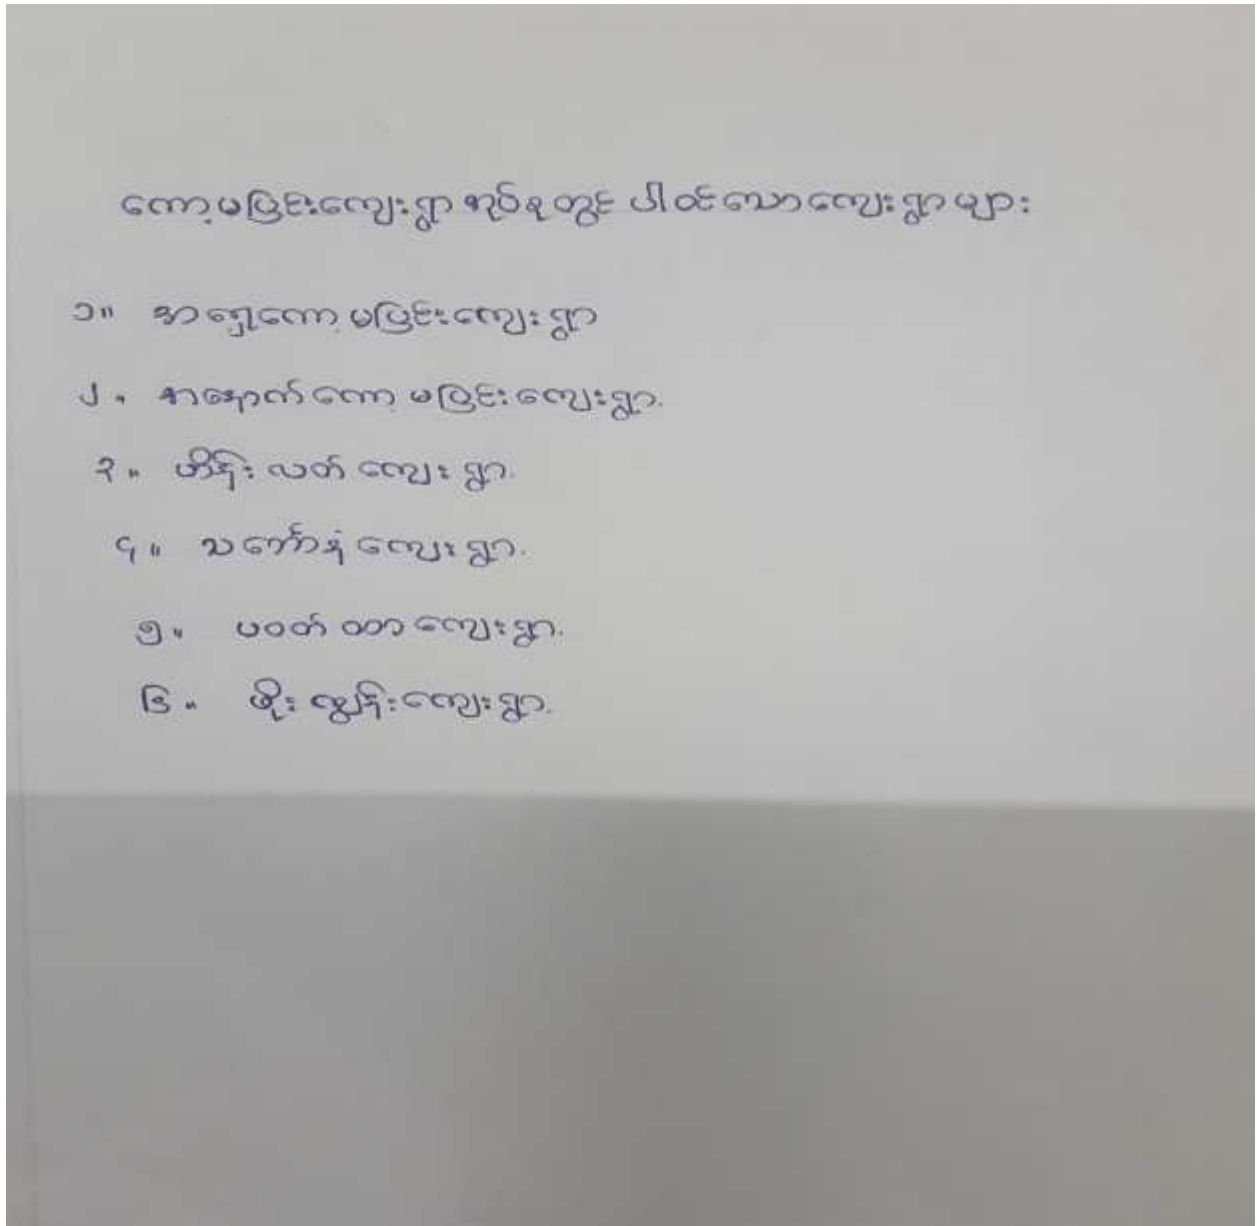 ကော့မပြင်းကျေးရွာအုပ်စုတွင် ပါဝင်သောကျေးရွာများ
၁။ အရှေ့ကော့မပြင်းကျေးရွာ
၂။ အနောက်ကော့မပြင်းကျေးရွာ
၃။ ဟိန်းလတ်ကျေးရွာ
၄။ သင်္ဘောနံကျေးရွာ
၅။ ပဝတ်ထာကျေးရွာ
၆။ ဖိုးကျွန်းကျေးရွာ